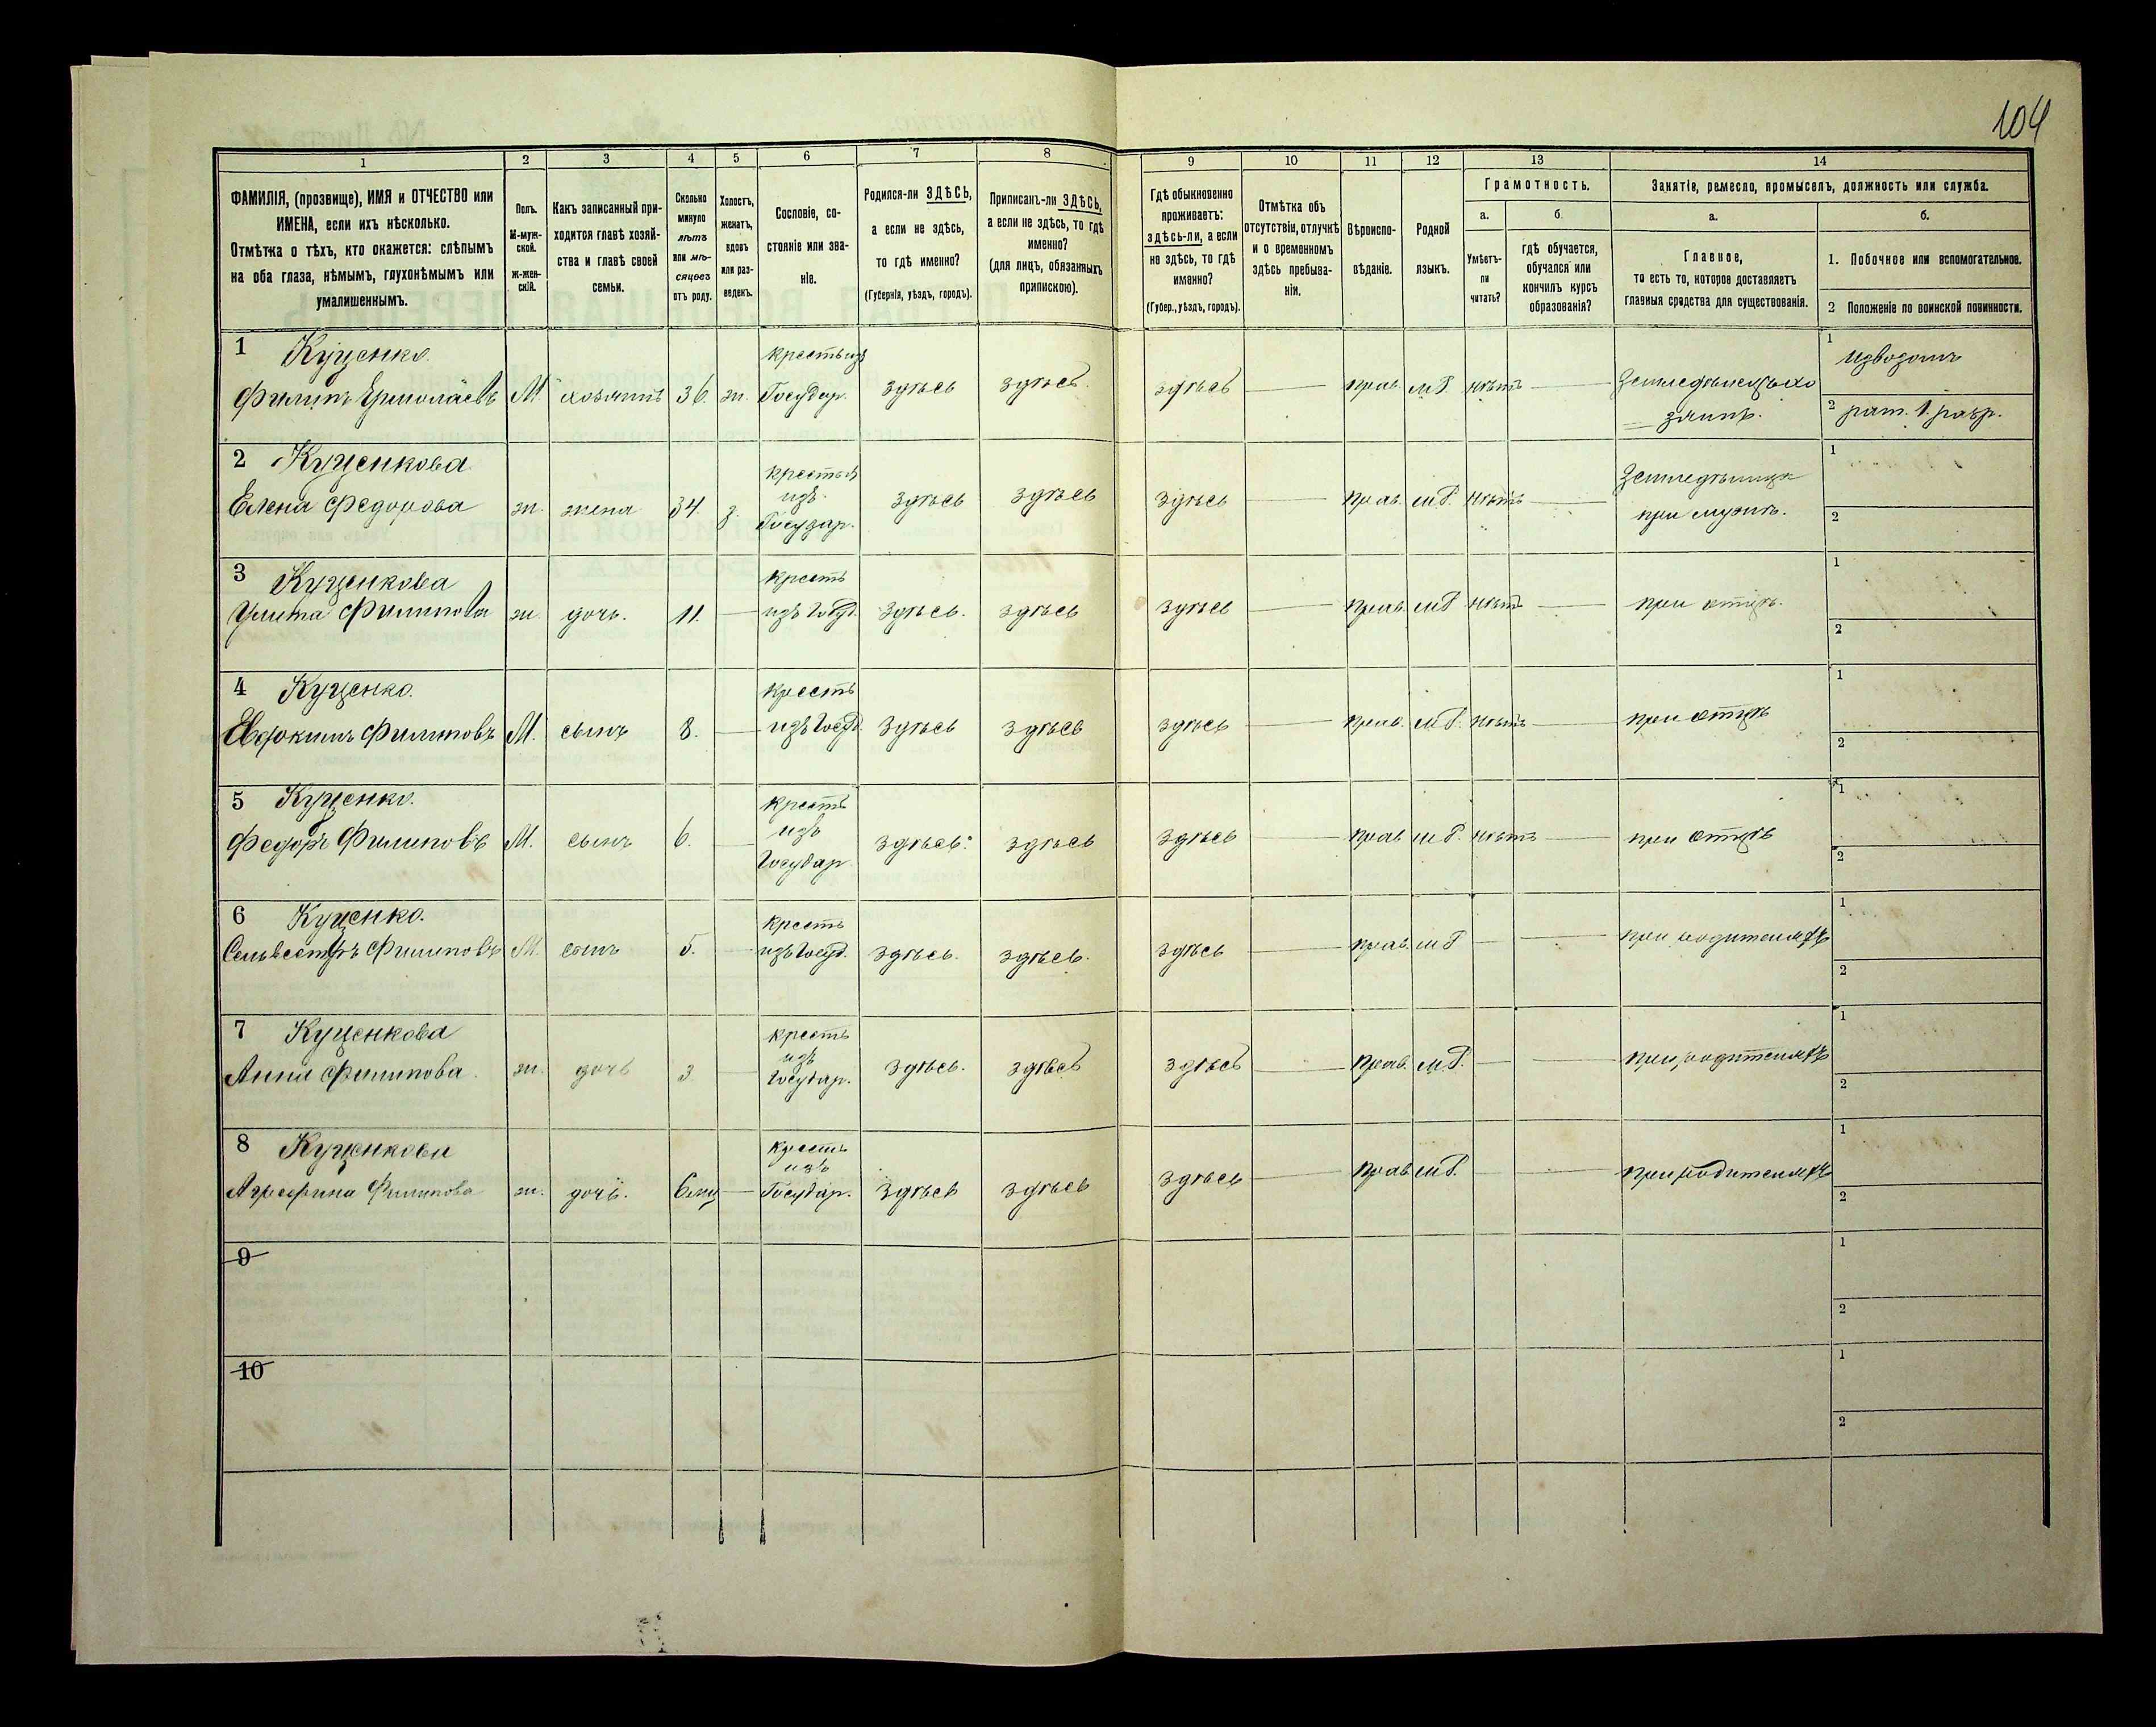 104
1 2 3 4 5 6 7 8 9 10 11 12 13 14
ФАМИЛІЯ, (прозвище), ИМЯ и ОТЧЕСТВО или
ИМЕНА, если ихъ нѣсколько.
Отмѣтка о тѣхъ, кто окажется: слѣпымъ
на оба глаза, нѣмымъ, глухонѣмымъ или
умалишеннымъ.
Полъ.
М-муж-
ской.
ж-жен-
скій.
Какъ записанный при-
ходится главѣ хозяй-
ства и главѣ своей
семьи.
Сколько
минуло
лѣтъ
или мѣ-
сяцевъ
отъ роду.
Холостъ,
женатъ,
вдовъ
или раз-
веденъ.
Сословіе, со-
стояніе или зва-
ніе.
Родился-ли ЗДѢСЬ,
а если не здѣсь,
то гдѣ именно?
(Губернія, уѣздъ, городъ).
Приписанъ-ли ЗДѢСЬ,
а если не здѣсь, то гдѣ
именно?
(для лицъ, обязанныхъ
припискою).
Гдѣ обыкновенно
проживаетъ:
здѣсь-ли, а если
не здѣсь, то гдѣ
именно?
(Губер., уѣздъ, городъ).
Отмѣтка объ
отсутствіи, отлучкѣ
и о временномъ
здѣсь пребыва-
ніи.
Вѣроиспо-
вѣданіе.
Родной
языкъ.
Грамотность.
а.
Умѣетъ-
ли
читать?
б.
гдѣ обучается,
обучался или
кончилъ курсъ
образованія?
Занятіе, ремесло, промыселъ, должность или служба.
а.
Главное,
то есть то, которое доставляетъ
главныя средства для существованія.
б.
1. Побочное или вспомогательное.
2 Положеніе по воинской повинности.
1 Куценко. крестьизъ 1 извозомъ
Филипъ Ермолаевъ М. хозяинъ 36. ж. Государ. здѣсь здѣсь. здѣсь — прав. м.Р. нѣтъ —
2 рат. 1. разр.
2 Куценкова крестья 1
Елена Федорова ж. жена 34. з. изъ Государ. здѣсь здѣсь здѣсь — прав. м.Р. нѣтъ — при мужѣ.
2
3 Куценкова кресть 1
Улита Филипова ж. дочь. 11. — изъ Госуд. здѣсь. здѣсь здѣсь — прав. м.Р. нѣтъ — при отцѣ.
2
4 Куценко. кресть 1
Евдокимъ Филиповъ М. сынъ 8. — изъ Госуд. здѣсь здѣсь здѣсь — прав. м.Р. нѣтъ — при отцѣ
2
5 Куценко. кресть 1
Федоръ Филиповъ М. сынъ 6. — изъ Государ. здѣсь. здѣсь здѣсь — прав. м.Р. нѣтъ — при отцѣ
2
6 Куценко. кресть 1
Сельвестръ Филиповъ М. сынъ 5. — изъ Госуд. здѣсь. здѣсь. здѣсь — прав. м.Р. — — при родителяхъ
2
7 Куценкова кресть 1
Анна Филипова. ж. дочь 3 — изъ Государ. здѣсь. здѣсь здѣсь — прав. м.Р. — — при родителяхъ
2
8 Куценкова кресть 1
Агрефина Филипова ж. дочь. — изъ Государ. здѣсь здѣсь здѣсь — прав. м.Р. — при родителяхъ
2
9 1
2
10 1
2